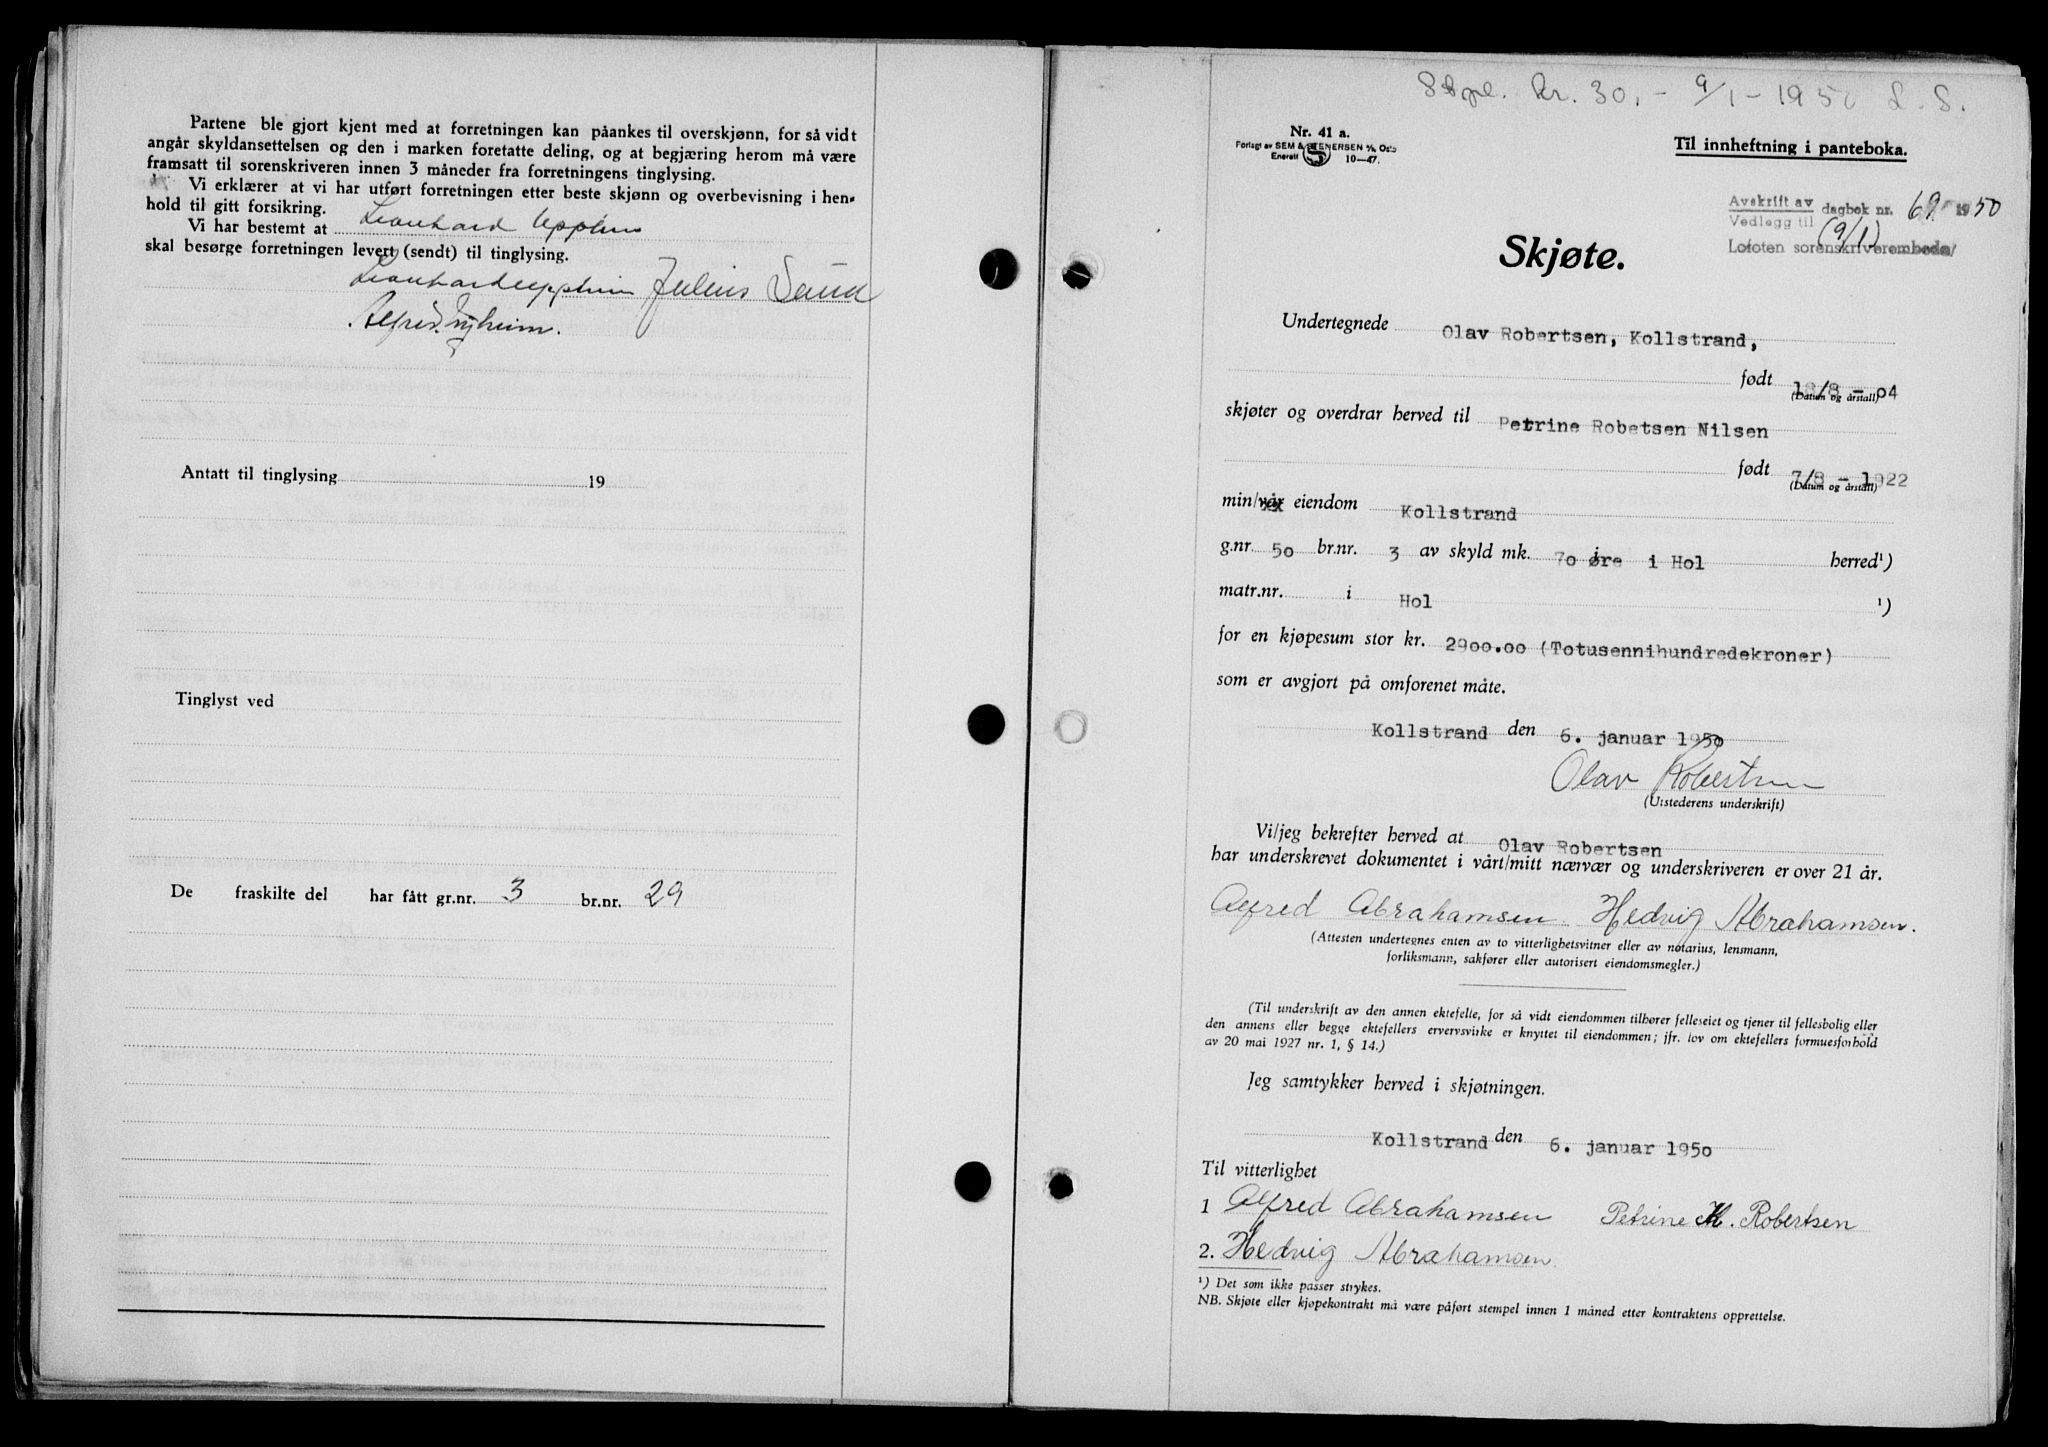 Partene ble gjort kjent med at forretningen kan påankes til overskjønn, for så vidt
angår skyldansettelsen og den i marken foretatte deling, og at begjæring herom må være
framsatt til sorenskriveren innen 3 måneder fra forretningens tinglysing.
Vi erklærer at vi har utført forretningen etter beste skjønn og overbevisning i hen-
hold til gitt forsikring.
Vi har bestemt at Leonhard Uppheim
skal besørge forretningen levert (sendt) til tinglysing.
Leonhard Uppheim Julius Sund
Alfred
Antatt til tinglysing 19
Tinglyst ved
De fraskilte del har fått gr.nr. 3 br.nr. 29
Stpl. kr. 30,- 9/1-1950 L. S.
Nr. 41 a.
Forlagt av SEM & STENERSEN A/S, Oslo
Enerett 10-47.
Til innheftning i panteboka.
Avskrift av
Vedlegg til
dagbok nr. 69 1950
(9/1)
Lofoten sorenskriverembede/
Skjøte.
Undertegnede Olav Robertsen, Kollstrand,
født 18/8 - 04
(Datum og årstall)
skjøter og overdrar herved til Petrine Robetsen Nilsen
født 7/8 - 1922
(Datum og årstall)
min/vår eiendom Kollstrand
g.nr. 50 br.nr. 3 av skyld mk. 70 øre i Hol herred¹)
matr.nr. i Hol ¹)
for en kjøpesum stor kr. 2900.00 (Totusennihundredekroner)
som er avgjort på omforenet måte.
Kollstrand den 6. januar 1950
Olav Robertsen
(Utstederens underskrift)
Vi/jeg bekrefter herved at Olav Robertsen
har underskrevet dokumentet i vårt/mitt nærvær og underskriveren er over 21 år.
Alfred Abrahamsen. Hedvig Abrahamsen.
(Attesten undertegnes enten av to vitterlighetsvitner eller av notarius, lensmann,
forliksmann, sakfører eller autorisert eiendomsmegler.)
(Til underskrift av den annen ektefelle, for så vidt eiendommen tilhører felleseiet og tjener til fellesbolig eller
den annens eller begge ektefellers ervervsvirke er knyttet til eiendommen; jfr. lov om ektefellers formuesforhold
av 20 mai 1927 nr. 1, § 14.)
Jeg samtykker herved i skjøtningen.
Kollstrand den 6. januar 1950
Til vitterlighet
1 Alfred Abrahamsen Petrine K. Robertsen
2. Hedvig Abrahamsen.
¹) Det som ikke passer strykes.
NB. Skjøte eller kjøpekontrakt må være påført stempel innen 1 måned etter kontraktens opprettelse.